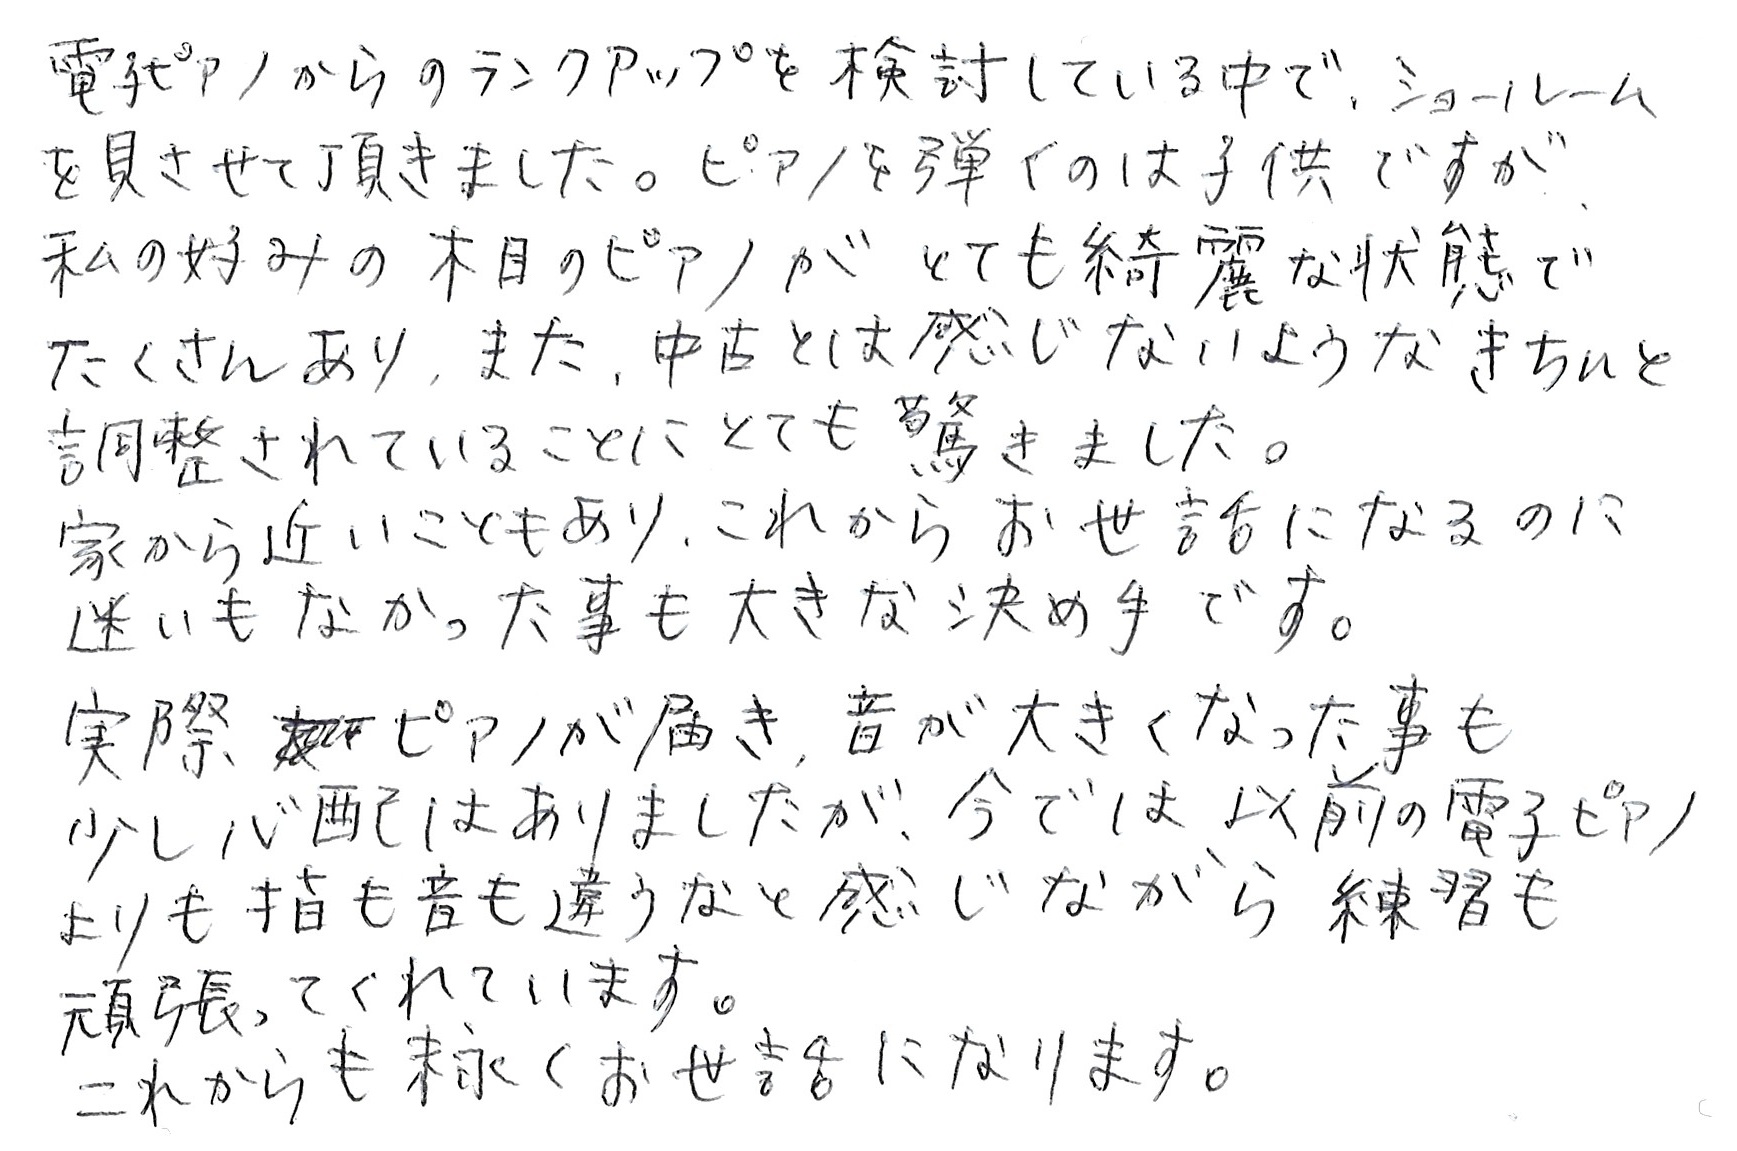 電子ピアノからのランクアップを検討している中で、ショールーム
を見させて頂きました。ピアノを弾くのは子供ですが、
私の好みの木目のピアノがとても綺麗な状態で
たくさんあり、また、中古とは感じないようなきちんと
調整されていることにとても驚きました。
家から近いこともあり、これからお世話になるのに
迷いもなかった事も大きな決め手です。
実際、ピアノが届き、音が大きくなった事も
少し心配はありましたが、今では以前の電子ピアノ
よりも指も音も違うなと感じながら練習も
頑張ってくれています。
これからも末永くお世話になります。